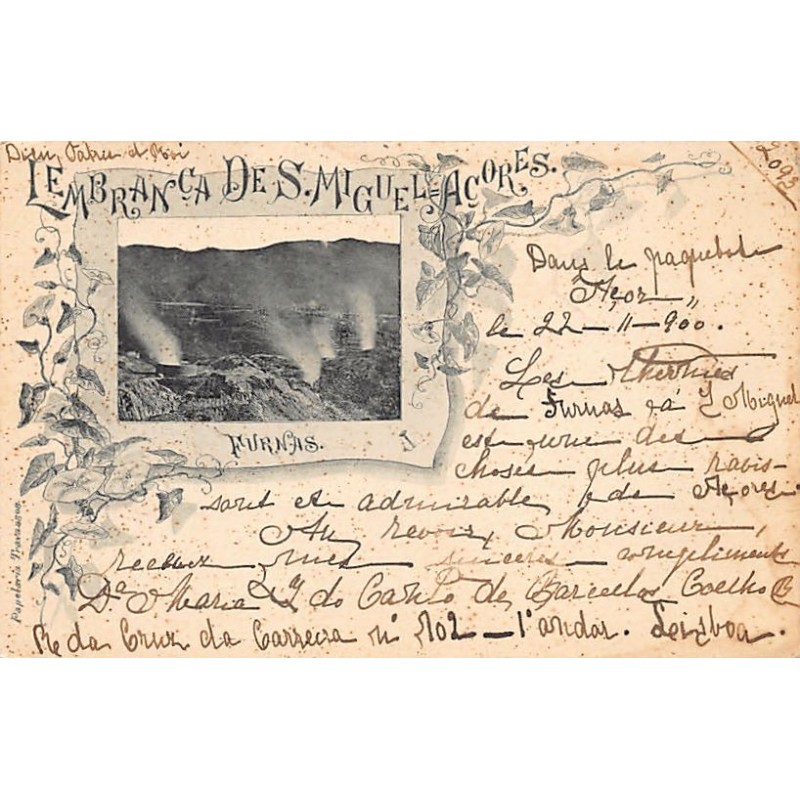 Dieu, Patrie et Roi
2093
LEMBRANÇA DE S. MIGUEL-AÇORES.
Dans le paquebot
"Açor"
le 22-11-900.
Les thermes
de Furnas, à S Miguel
est une des
choses plus ravis-
sant et admirable de Açores
Au revoir, Monsieur,
recevez mes sincères compliments
Da Maria do Canto de Barcellos Coelho B
R da Cruz da Carreira nº 102 - 1º andar. Leisboa.
FURNAS.
Papelaria Travassos